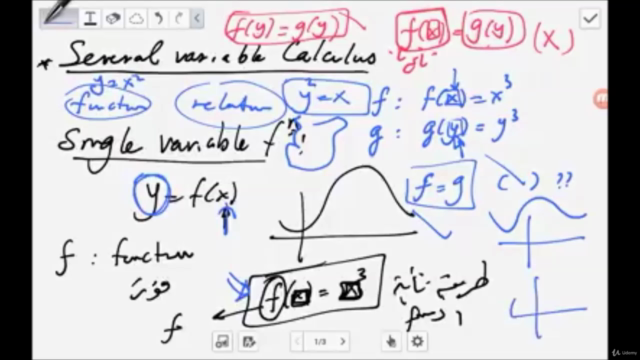 f(y) = g(y)
f(x) = g(y) (x)
* Several variable Calculus
y = x²
function relation y² = x f : f(x) = x³
g : g(y) = y³
Single variable fⁿ:
f = g ( ) ??
y = f(x)
f : function
f( ) = ³
f
1/3
Udemy